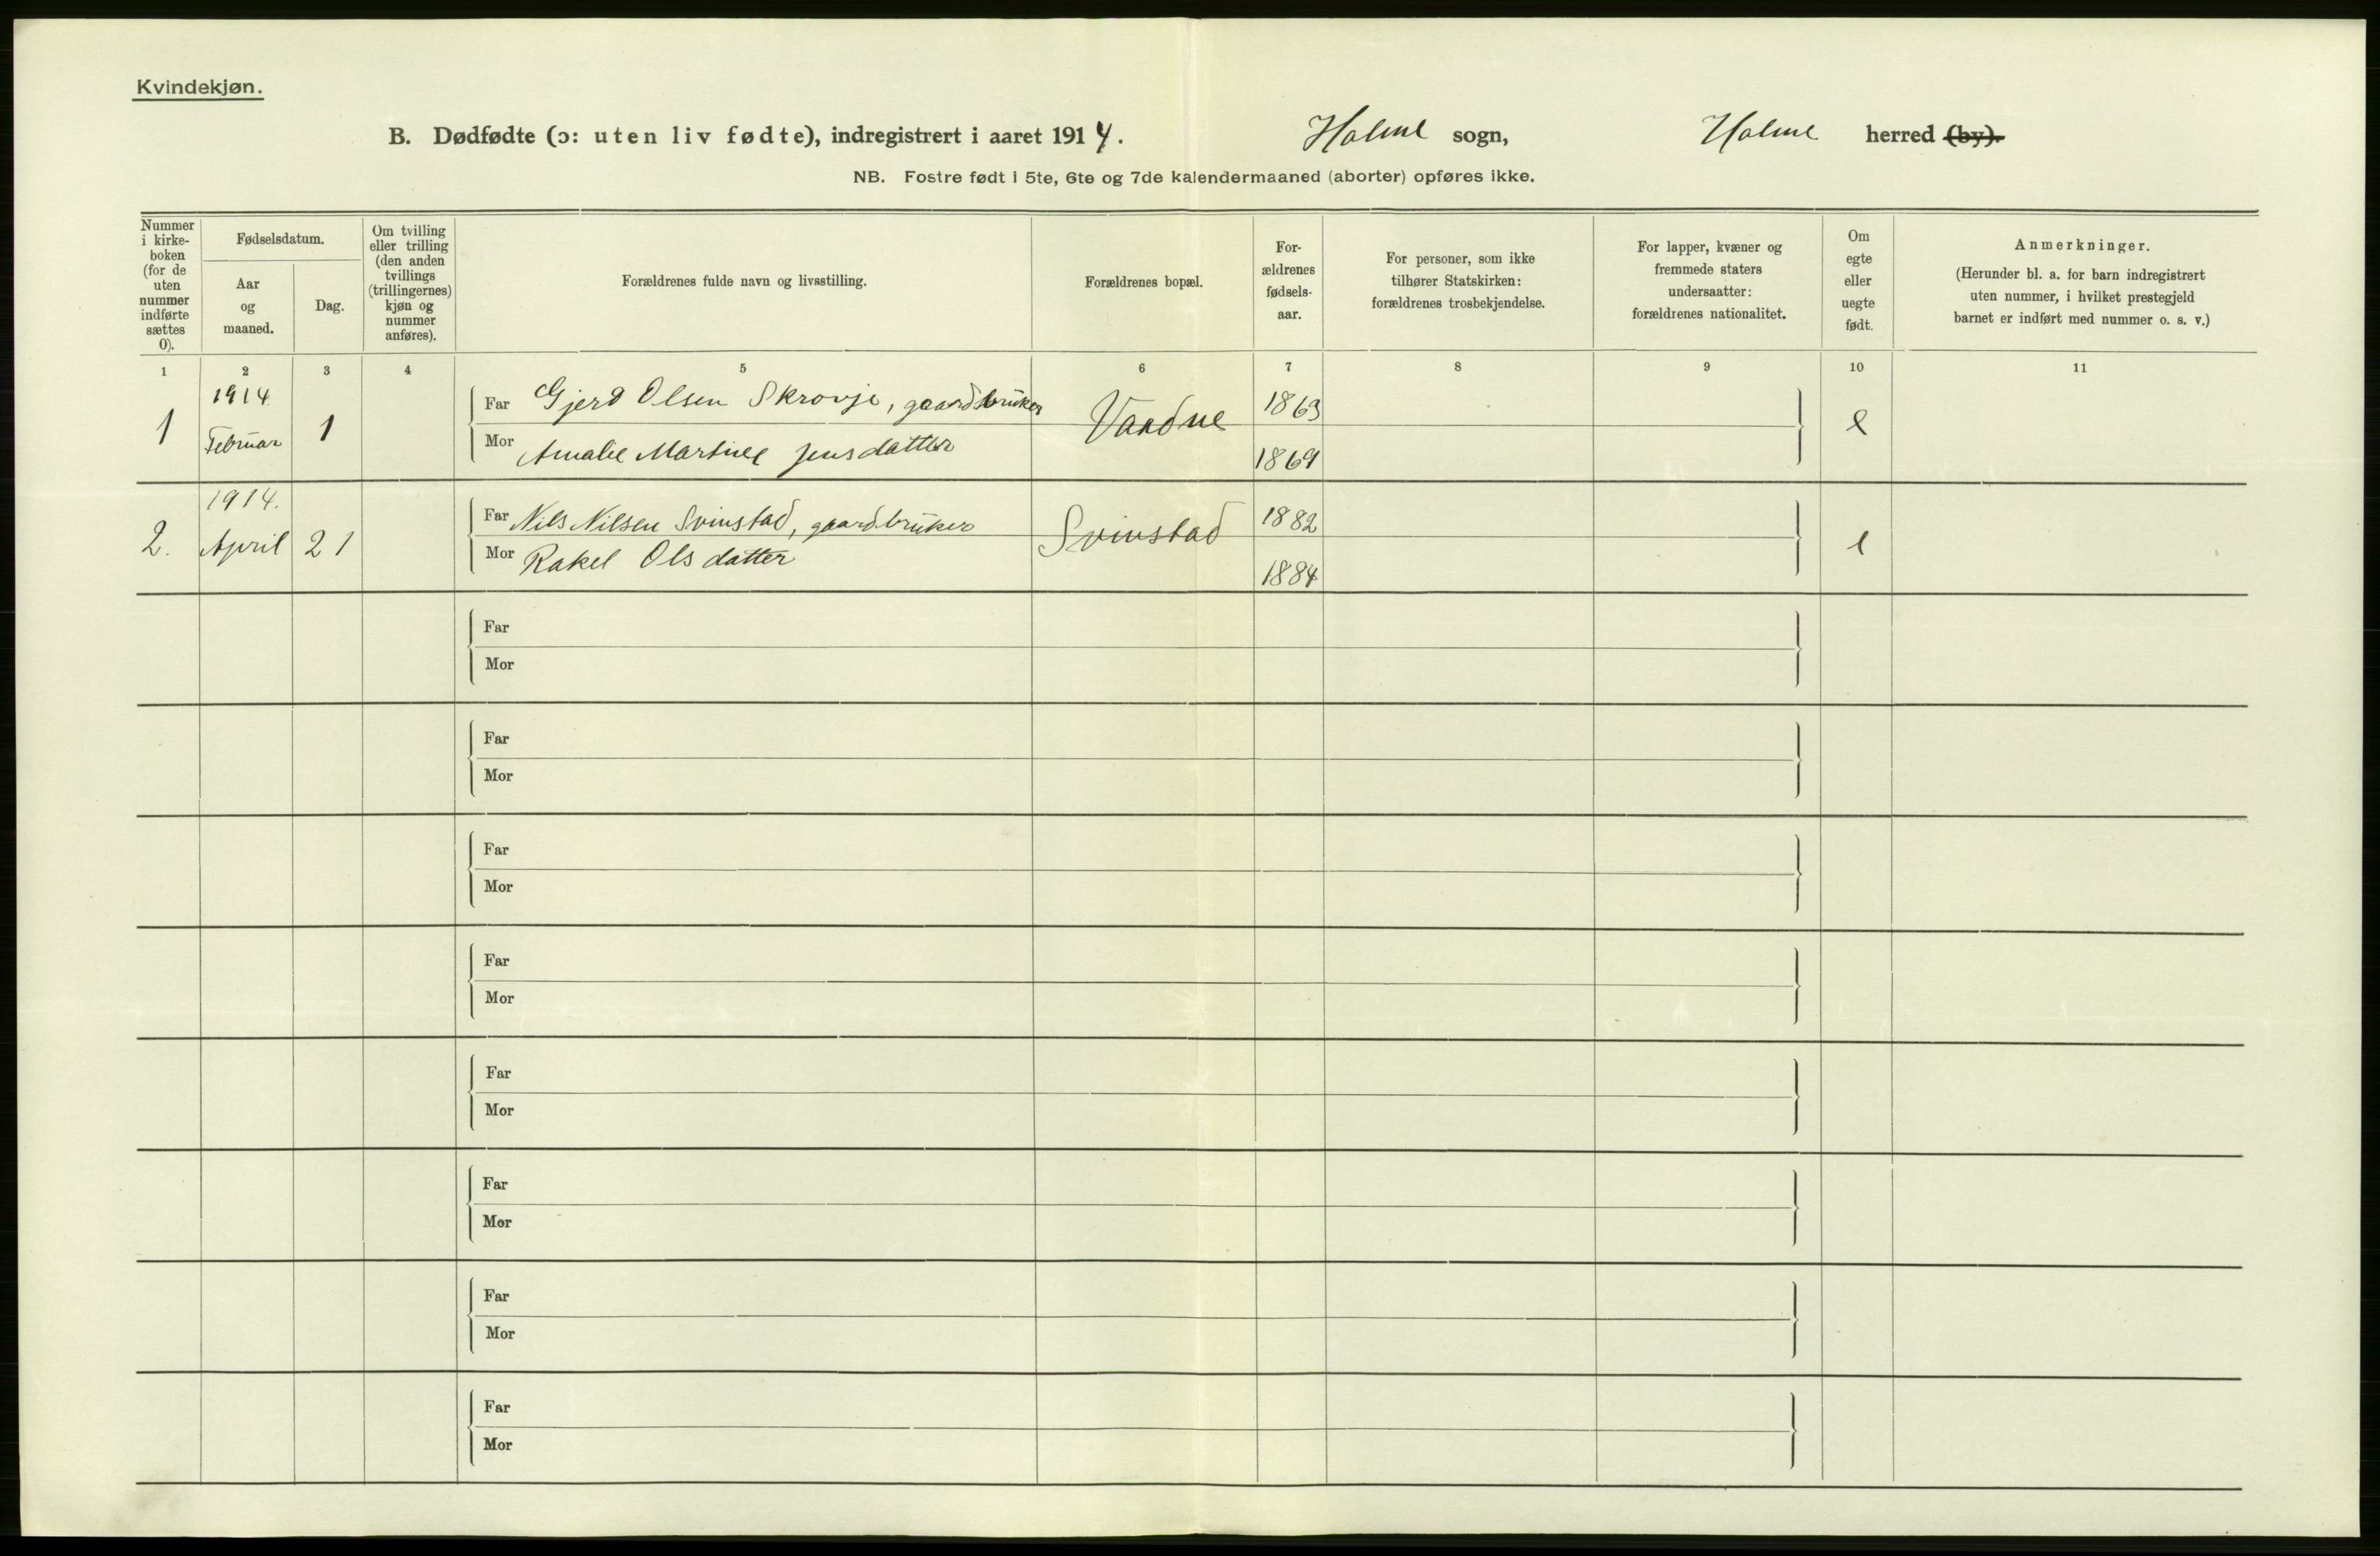 Kvindekjøn.
B. Dødfødte (ɔ: uten liv fødte), indregistrert i aaret 1914. Holme sogn, Holme herred (by).
NB. Fostre født i 5te, 6te og 7de kalendermaaned (aborter) opføres ikke.
Nummer
i kirke-
boken
(for de
uten
nummer
indførte
sættes
0).
Fødselsdatum.
Aar
og
maaned.
Dag.
Om tvilling
eller trilling
(den anden
tvillings
(trillingernes)
kjøn og
nummer
anføres).
Forældrenes fulde navn og livsstilling.
Forældrenes bopæl.
For-
ældrenes
fødsels-
aar.
For personer, som ikke
tilhører Statskirken:
forældrenes trosbekjendelse.
For lapper, kvæner og
fremmede staters
undersaatter:
forældrenes nationalitet.
Om
egte
eller
uegte
født.
Anmerkninger.
(Herunder bl. a. for barn indregistrert
uten nummer, i hvilket prestegjeld
barnet er indført med nummer o. s. v.)
1 2 3 4 5 6 7 8 9 10 11
1
1914
Februar
1
Far Gjerd Olsen Skrovje, gaardbruker
Mor Amalie Martine Jensdatter
Vaadne
1863
1869
e
2.
1914.
April
21
Far Nils Nilsen Svinstad, gaardbruker
Mor Rakel Olsdatter
Svinstad
1882
1884
e
Far
Mor
Far
Mor
Far
Mor
Far
Mor
Far
Mor
Far
Mor
Far
Mor
Far
Mor